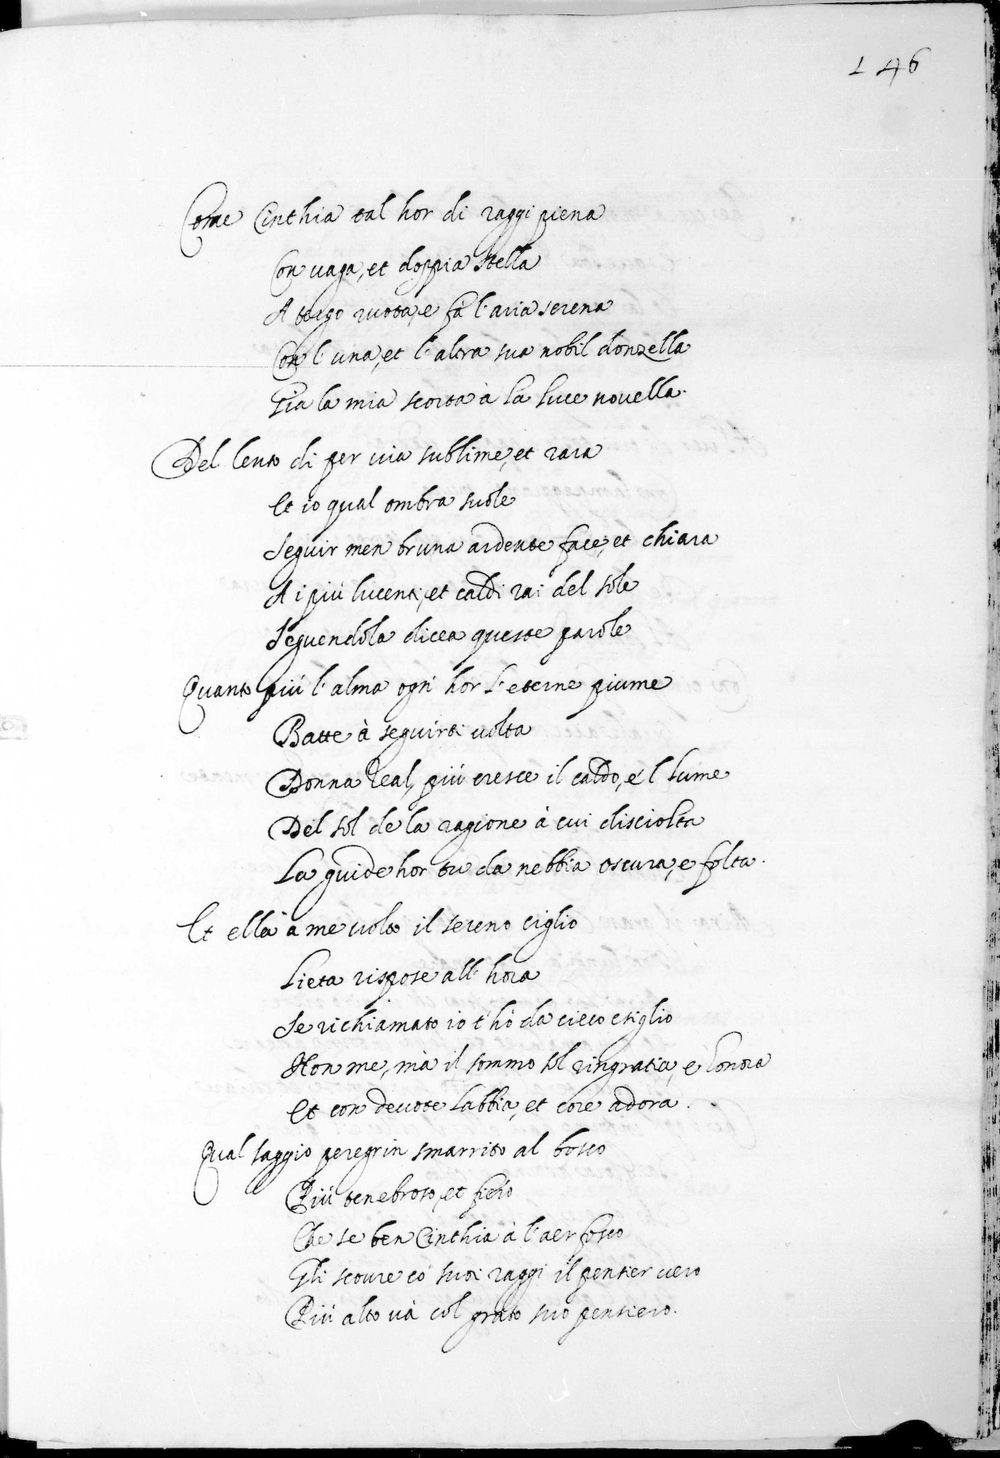 146
Come Cinthia tal hor di raggi piena
Con vaga, et doppia stella
A tergo ruota, e fà l'aria serena
Con l'una, et l'altra sua nobil donzella
Gia la mia scorta à la luce novella.
Del lento di per via sublime, et rara
Et io qual ombra suole
Seguir men bruna ardente face, et chiara
A i più lucenti, et caldi rai del sole
Seguendola dicea queste parole
Quanto più l'alma ogn' hor l'eterne piume
Batte à seguirti volta
Donna Real, più cresce il caldo, e 'l lume
Del sol de la ragione à cui disciolta
La guide hor tu da nebbia oscura, e folta.
Et ella à me volto il sereno ciglio
Lieta rispose all' hora
Se richiamato io t'hò da cieco esiglio
Non me, mà il sommo sol ringratia, e honora
Et con devote labbia, et core adora.
Qual saggio peregrin smarrito al bosco
Più tenebroso, et fiero
Che se ben Cinthia à l'aer fosco
Gli scovre co' suoi raggi il sentier vero
Più alto và col grato suo pensiero.